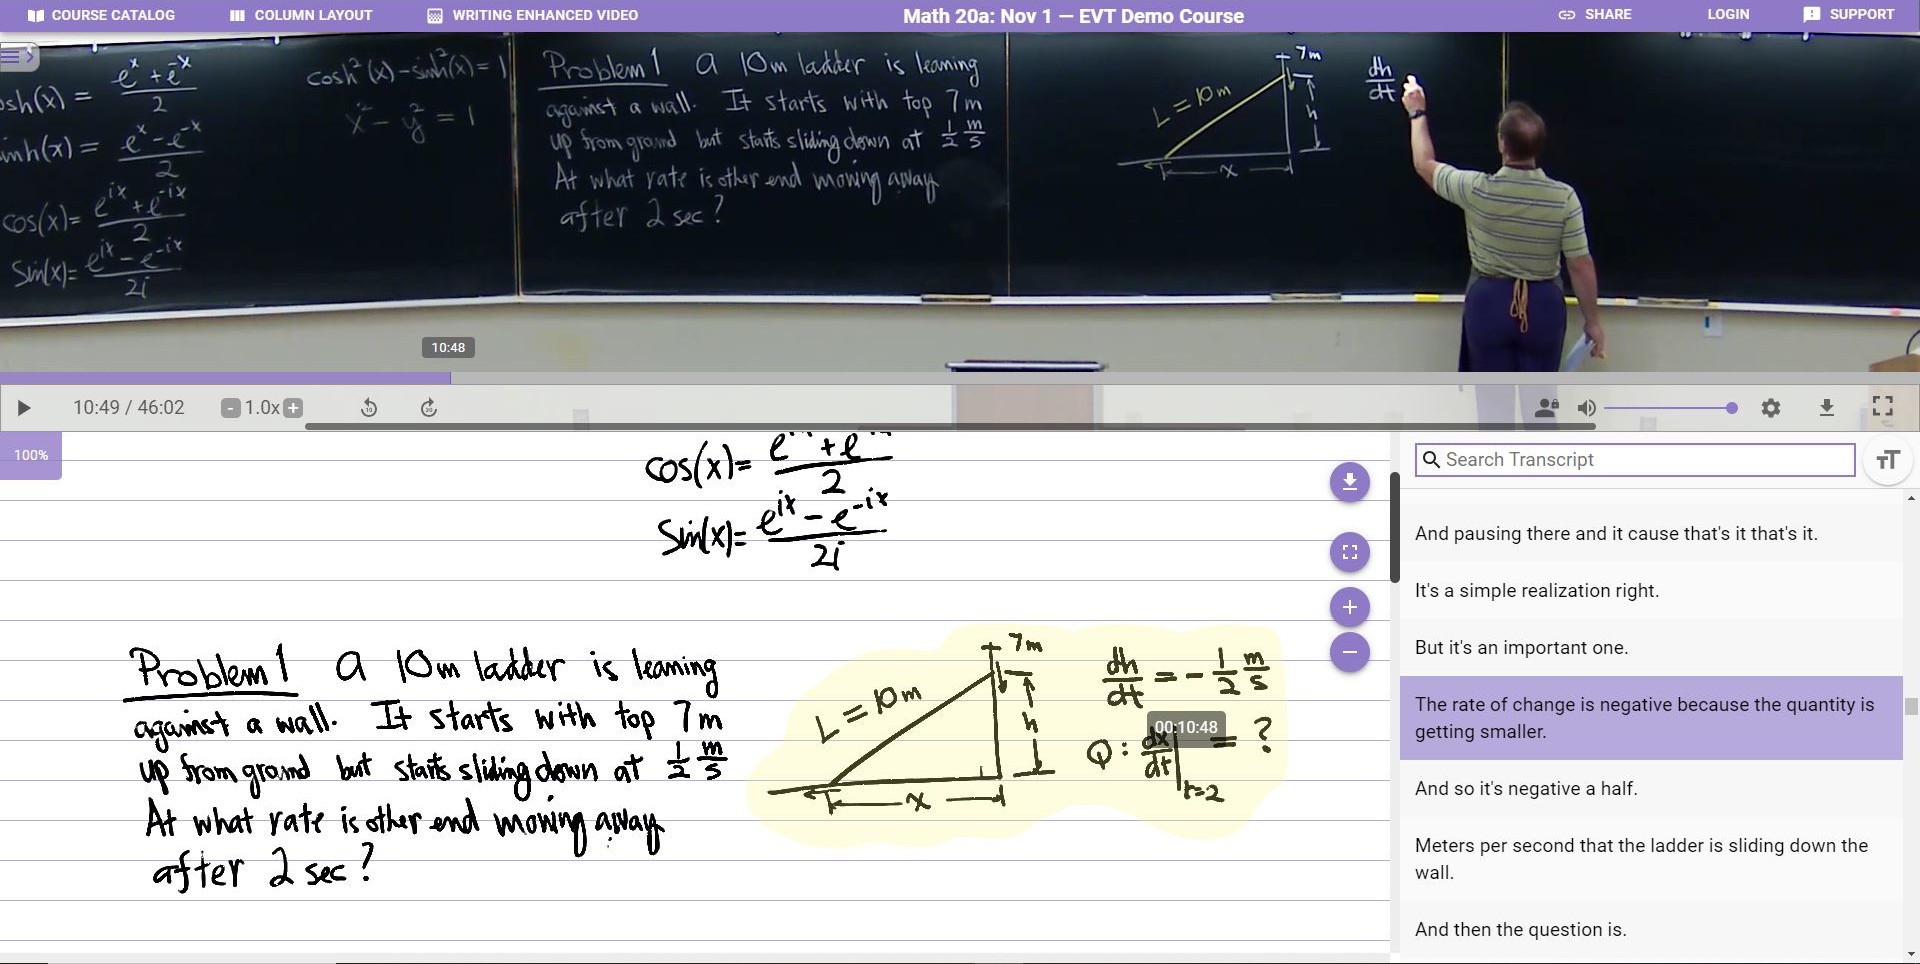 COURSE CATALOG
COLUMN LAYOUT
WRITING ENHANCED VIDEO
Math 20a: Nov 1 — EVT Demo Course
SHARE
LOGIN
SUPPORT
osh(x) = e^x + e^-x / 2
inh(x) = e^x - e^-x / 2
cos(x) = e^ix + e^-ix / 2
Sin(x) = e^ix - e^-ix / 2i
cosh²(x) - sinh²(x) = 1
x² - y² = 1
Problem 1 A 10m ladder is leaning
against a wall. It starts with top 7m
up from ground but starts sliding down at 1/2 m/s
At what rate is other end moving away
after 2 sec?
L = 10m
7m
h
x
dh/dt
10:48
10:49 / 46:02
- 1.0x +
100%
cos(x) = e + e / 2
Sin(x) = e^ix - e^-ix / 2i
Problem 1 A 10m ladder is leaning
against a wall. It starts with top 7m
up from ground but starts sliding down at 1/2 m/s
At what rate is other end moving away
after 2 sec?
L = 10m
7m
h
x
dh/dt = - 1/2 m/s
00:10:48
Q: dx/dt | t=2 = ?
Search Transcript
And pausing there and it cause that's it that's it.
It's a simple realization right.
But it's an important one.
The rate of change is negative because the quantity is
getting smaller.
And so it's negative a half.
Meters per second that the ladder is sliding down the
wall.
And then the question is.